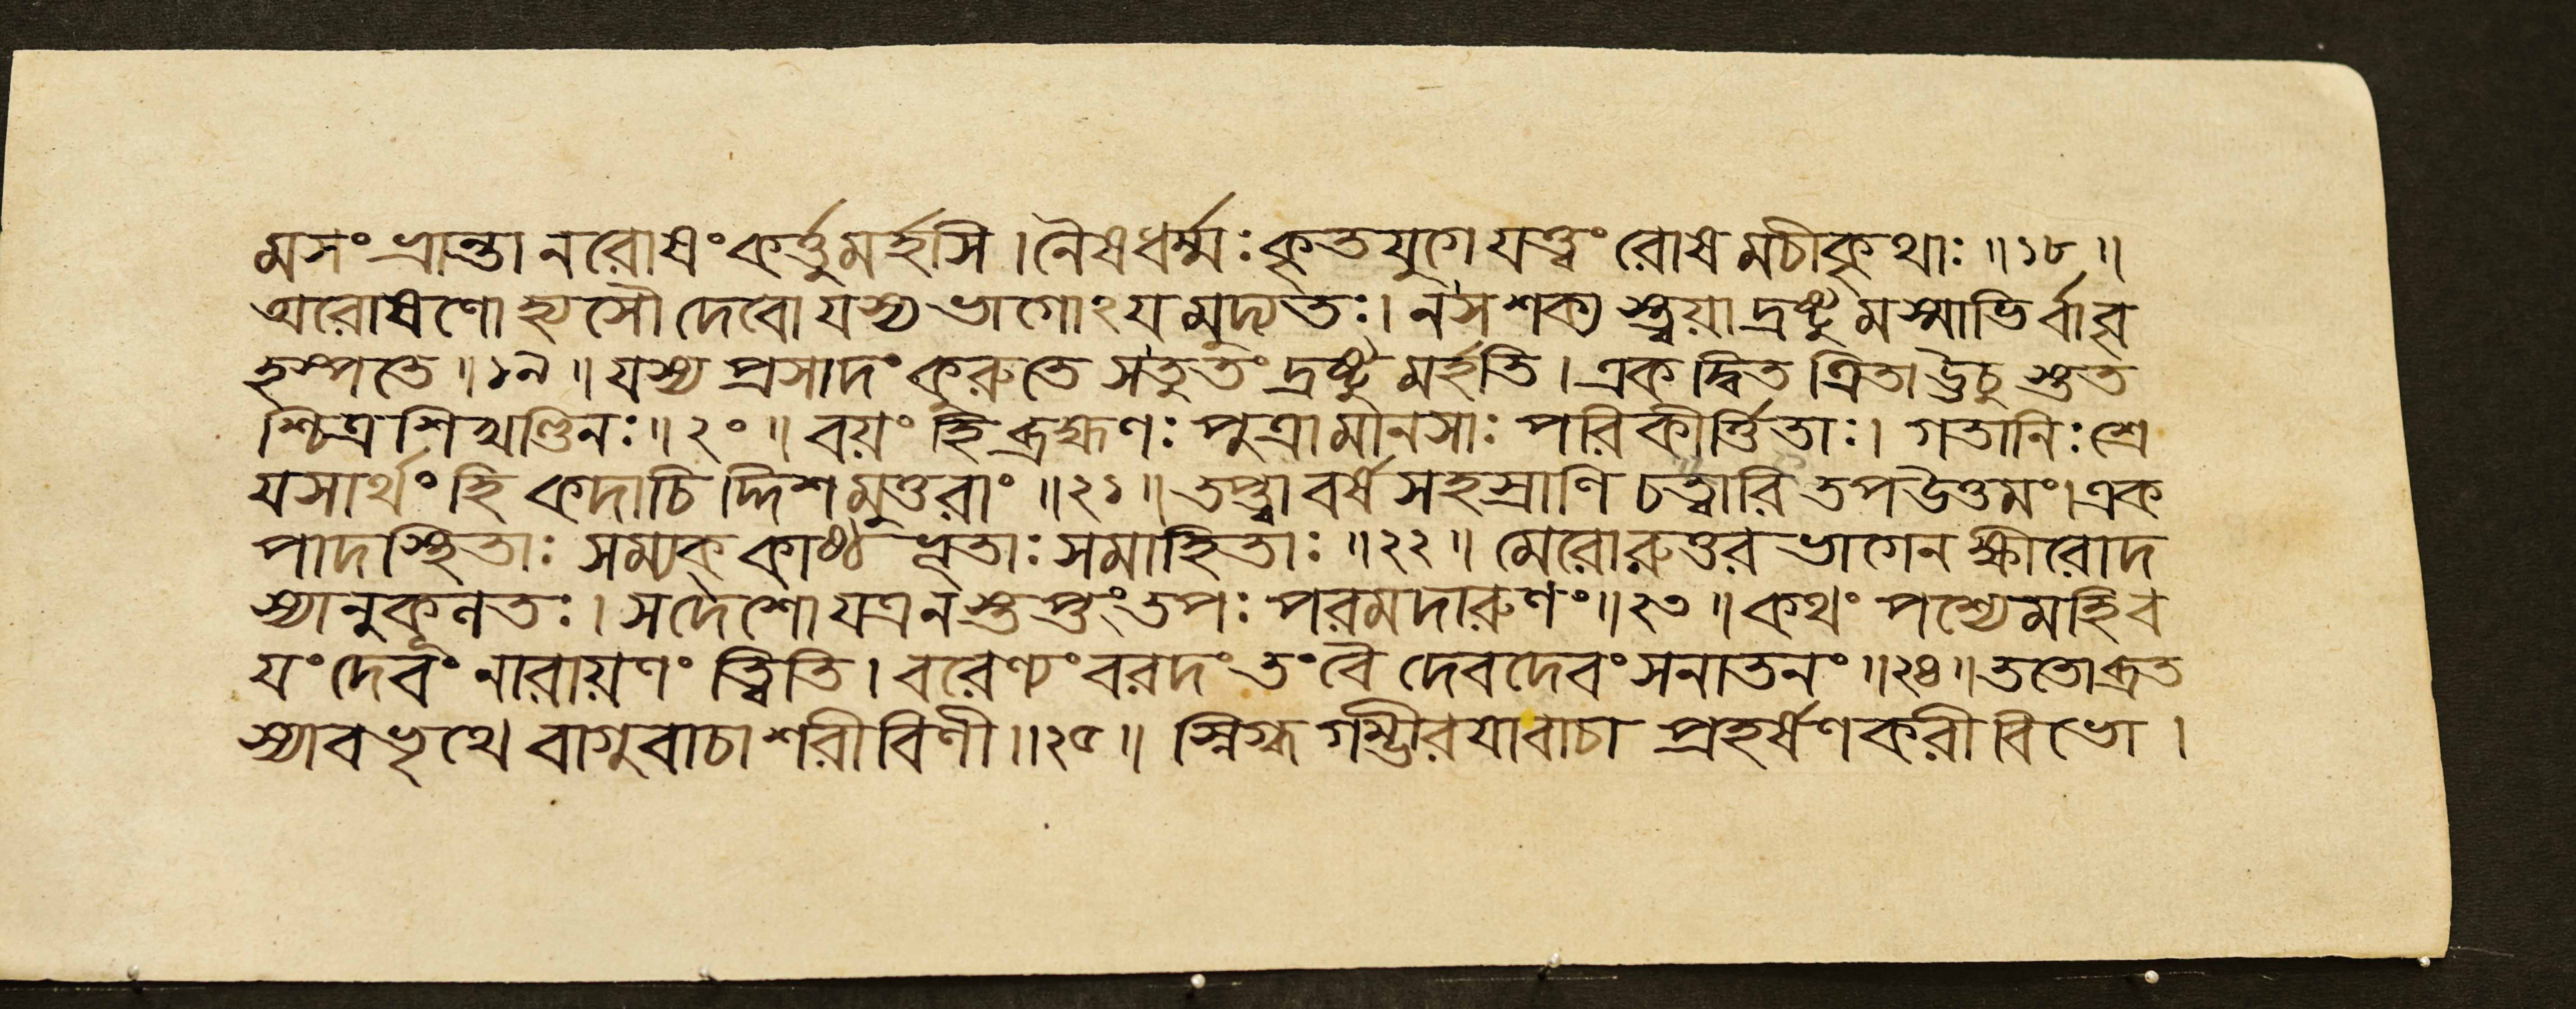 মসংভ্রান্তা নরোষং কর্ত্তুমর্হসি । নৈষধর্ম্মঃ কৃতযুগে যত্ত্বং রোষমচীকৃথাঃ ॥১৮॥
অরোষণো হ্যসৌ দেবো যস্য ভাগোঽয়মুদ্যতঃ । নসশক্য স্ত্বয়া দ্রষ্টুমস্মাভির্বাবৃ
হস্পতে ॥১৯॥ যস্য প্রসাদং কুরুতে সতুতং দ্রষ্টুমর্হতি । একদ্বিত ত্রিতাশ্চৈচুস্তত
শ্চিত্রশিখণ্ডিনঃ ॥২০॥ বয়ং হি ব্রহ্মণঃ পুত্রামানসাঃ পরিকীর্ত্তিতাঃ । গতানিঃশ্রে
যসার্থং হি কদাচিদ্দিশমুত্তরাং ॥২১॥ তপ্ত্বা বর্ষসহস্রাণি চত্বারি তপউত্তমং । এক
পাদস্থিতাঃ সম্যক্ কাষ্ঠভূতাঃ সমাহিতাঃ ॥২২॥ মেরোরুত্তর ভাগেন ক্ষীরোদ
স্যানুকূলতঃ । সদেশো যত্র নস্তপ্তং তপঃ পরমদারুণং ॥২৩॥ কথং পশ্যেমহি ব
য়ং দেবং নারায়ণং ত্বিতি । বরেণ্যং বরদং তং বৈ দেবদেবং সনাতনং ॥২৪॥ ততোব্রত
স্যাবভৃথে বাগুবাচাশরীরিণী ॥২৫॥ স্নিগ্ধ গম্ভীরযাবাচা প্রহর্ষণকরী বিভো ।